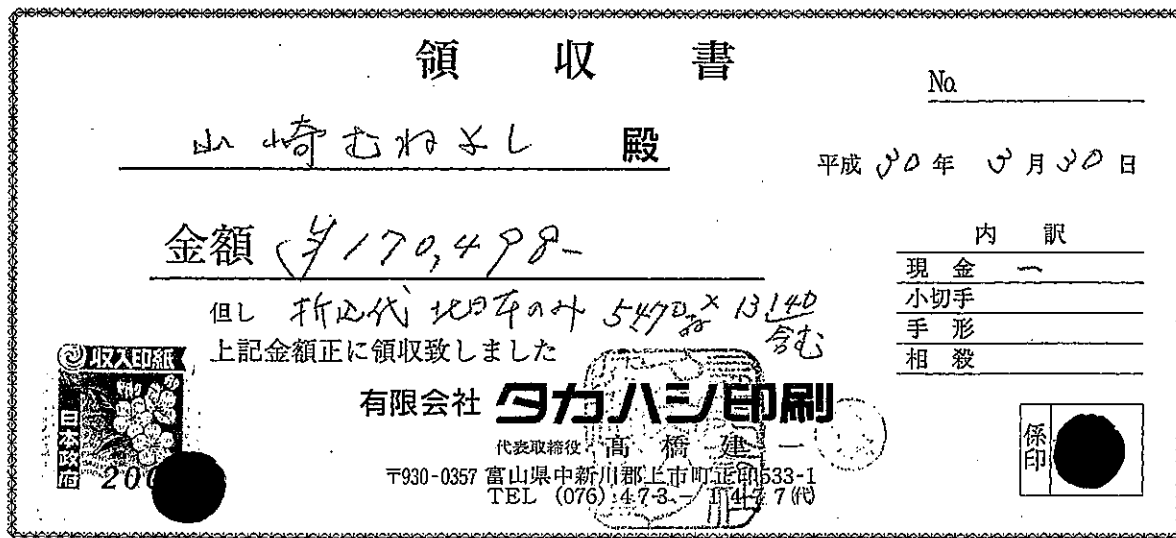 領収書
No.
山崎むねよし 殿
平成 30 年 3 月 30 日
金額 ¥170,498-
内訳
現金 ー
小切手
手形
相殺
但し 折込代 北日本のみ 5470
140
含む
上記金額正に領収致しました
収入印紙
日本政府
200
有限会社 タカハシ印刷
代表取締役 高橋建一
〒930-0357 富山県中新川郡上市町正印533-1
TEL (076) 473-1477(代)
係印